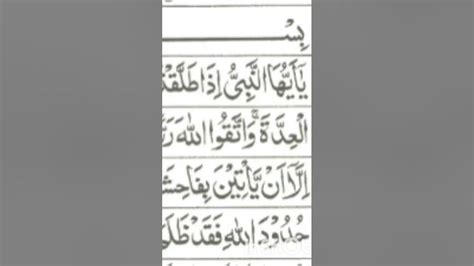 بِسْـــــــــــــ
يٰۤاَيُّهَا النَّبِىُّ اِذَا طَلَّقْتُ
الْعِدَّةَ ۚ وَاتَّقُوا اللّٰهَ رَبَّ
اِلَّاۤ اَنْ يَّاْتِيْنَ بِفَاحِشَ
حُدُوْدَ اللّٰهِ فَقَدْ ظَلَمَ